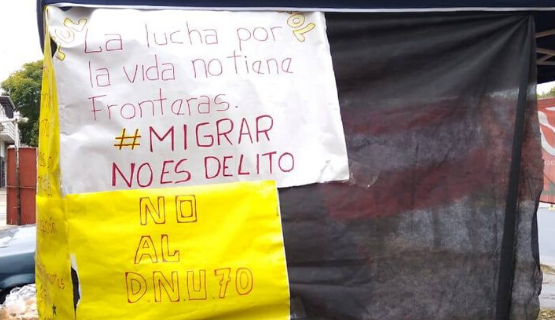 La lucha por
la vida no tiene
Fronteras.
#MIGRAR
NO ES DELITO
NO
AL
D.N.U.70